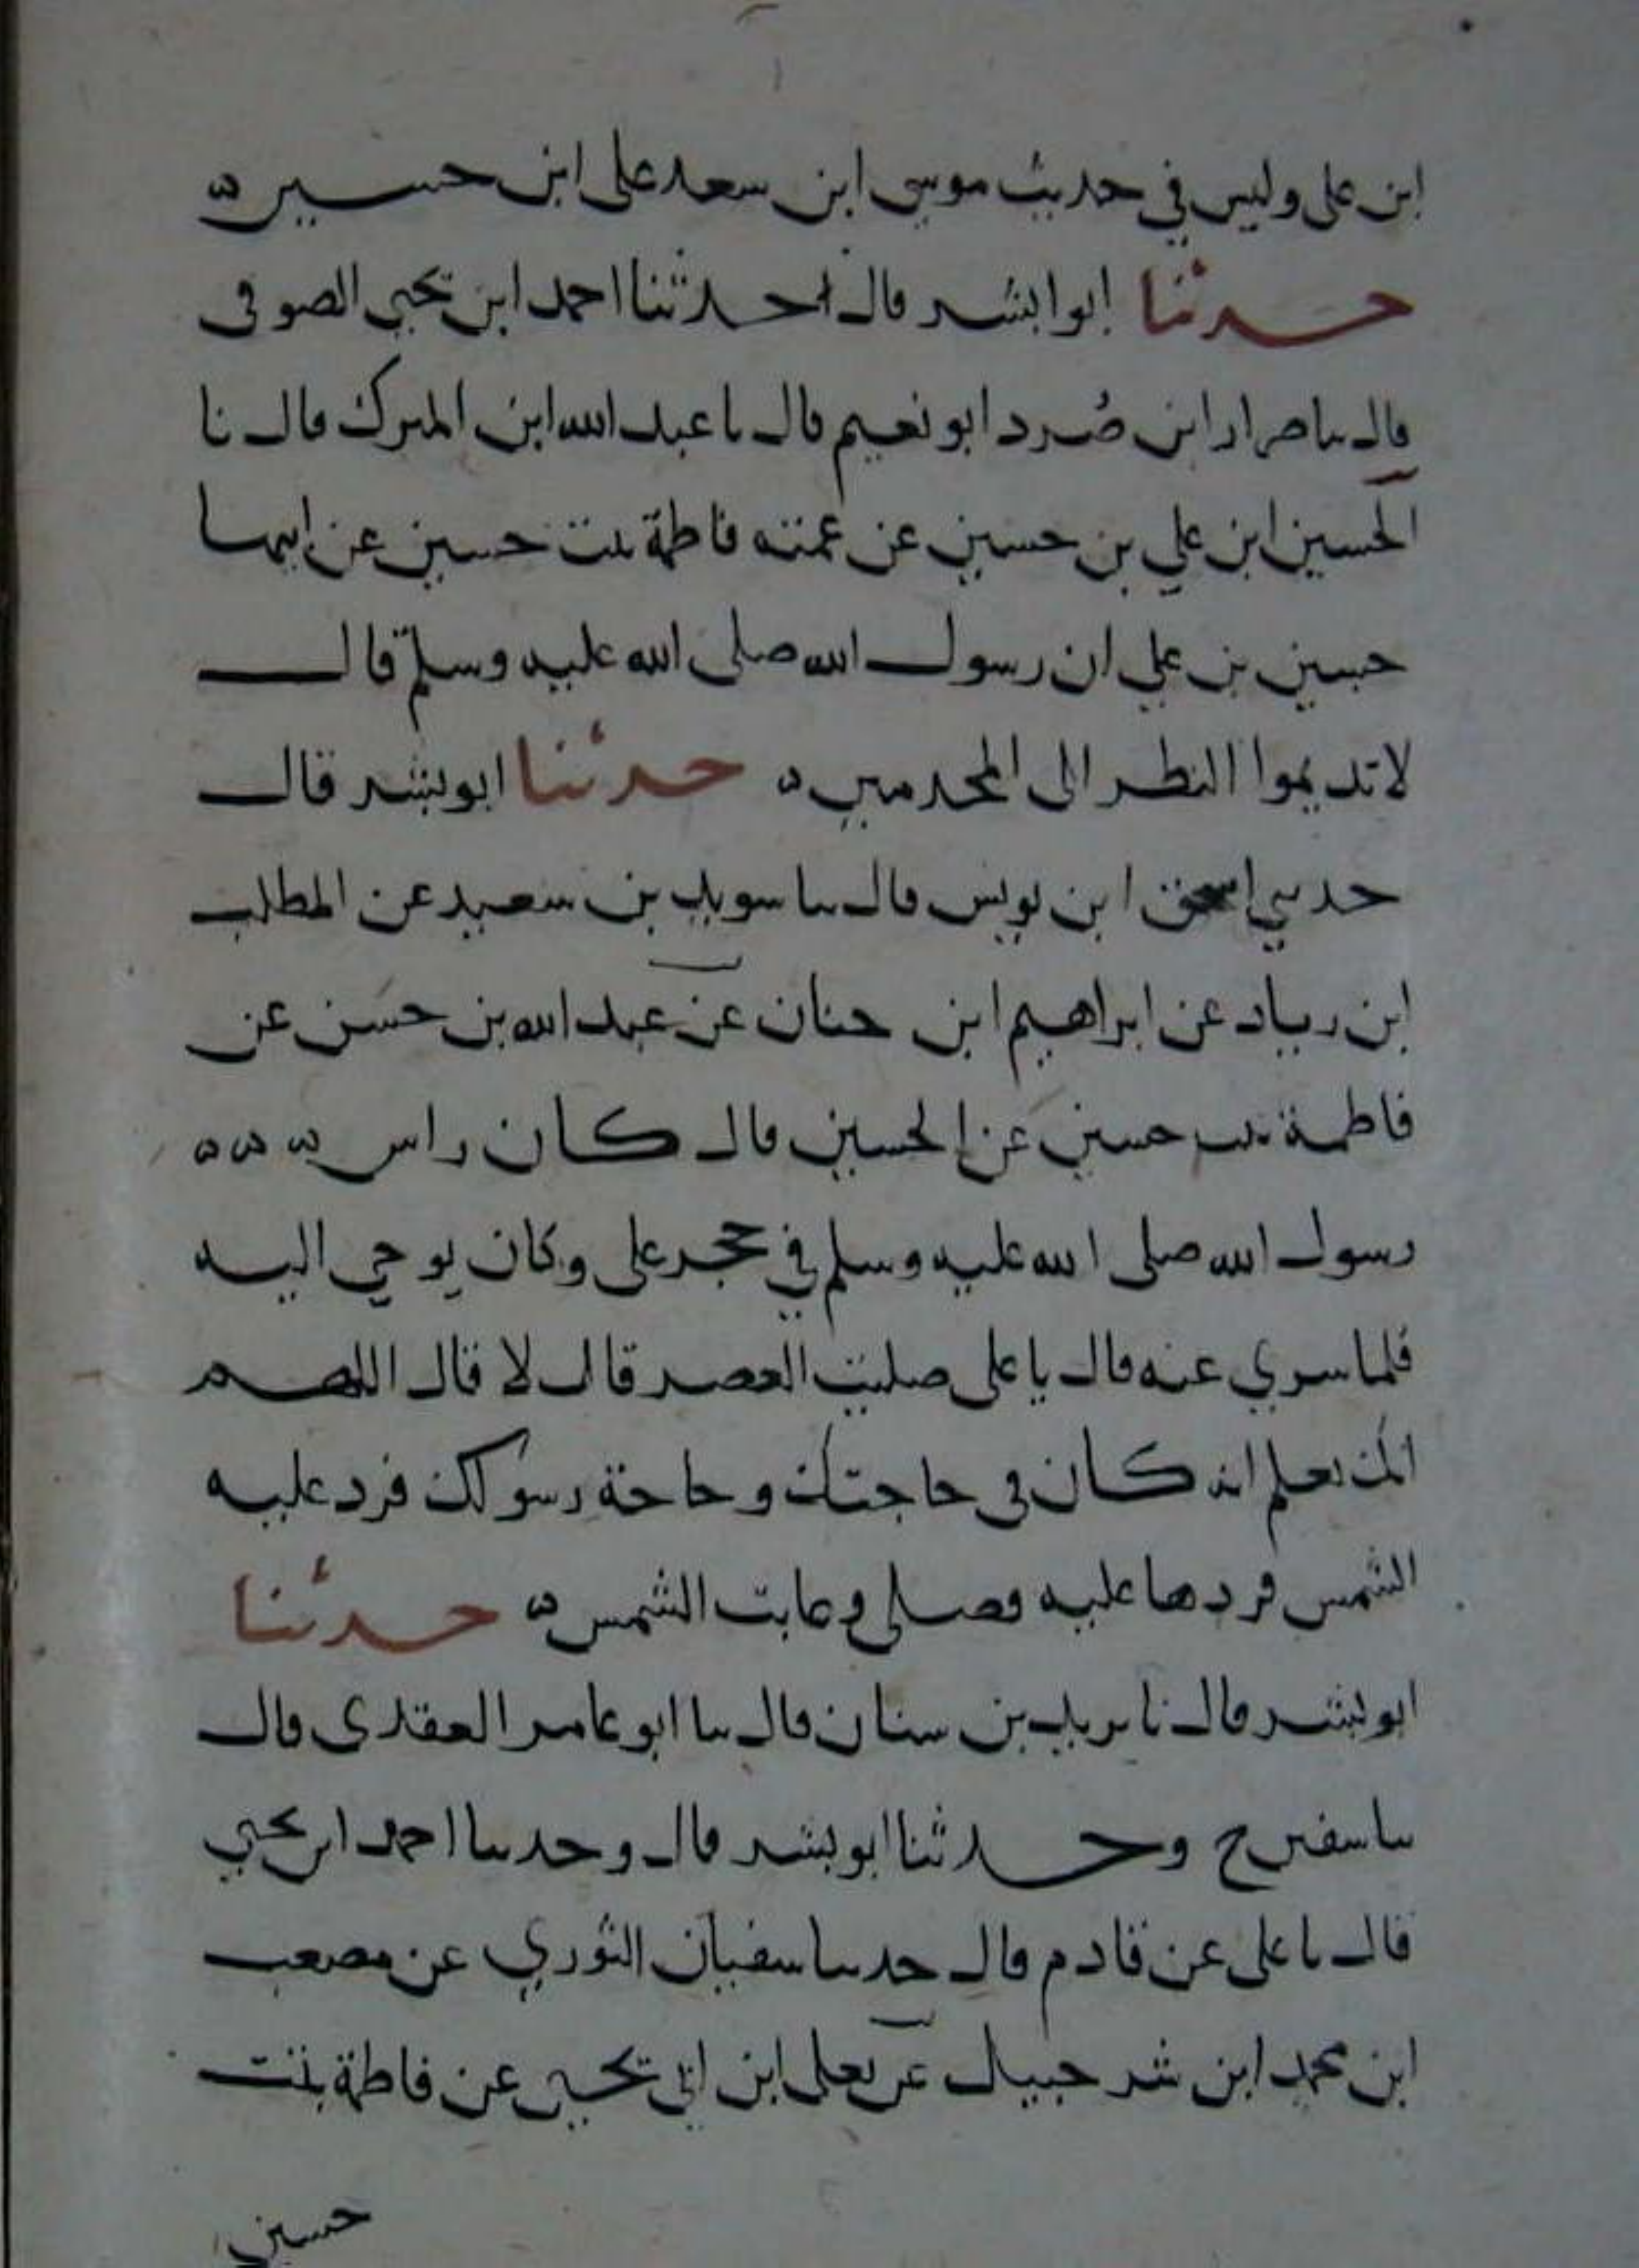 ابن على وليس في حديث موسى ابن سعد على ابن حسين ه
حدثنا ابوا بشر قال حدثنا احمد ابن يحيى الصوفى
قال سا صرار ابن صُرد ابو نعيم قال ىا عبد الله ابن المبرك قال نا
الحسين ابن علي بن حسين عن عمته فاطمة بنت حسين عن ابيها
حسين بن علي ان رسول الله صلى الله عليه وسلم قال
لا تديموا النظر الى المجدمين ه حدثنا ابو بشر قال
حدىني اسحق ابن يونس قال سا سويد بن سعيد عن المطلب
ابن زياد عن ابراهيم ابن حنان عن عبد الله بن حسَن عن
فاطمة بنت حسين عن الحسين قال كان راس ه ه ه
رسول الله صلى الله عليه وسلم في حجر على وكان يوحي اليه
فلما سري عنه قال يا على صليت العصر قال لا قال اللهم
انك تعلم انه كان في حاجتك وحاجة رسولك فرد عليه
الشمس فردها عليه فصلى وغابت الشمس ه حدثنا
ابو بشر قال نا يزيد بن سنان قال سا ابو عامر العقدى قال
سا سفين ح وحدثنا ابو بشر قال وحدسا احمد ابن يحيي
قال ىا على عن قادم قال حدسا سفيان الثوري عن مصعب
ابن محمد ابن شرحبيل عن يعلى ابن ابي يحيى عن فاطمة بنت
حسين